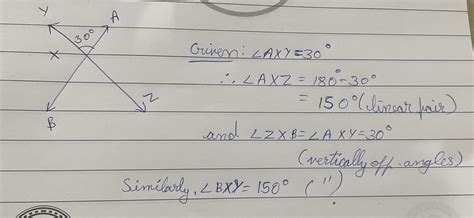 Y
A
30°
X
B
Z
Given: ∠AXY=30°
∴ ∠AXZ = 180°-30°
= 150° (linear pair)
and ∠ZXB=∠AXY=30°
(vertically opp. angles)
Similarly, ∠BXY=150° (")